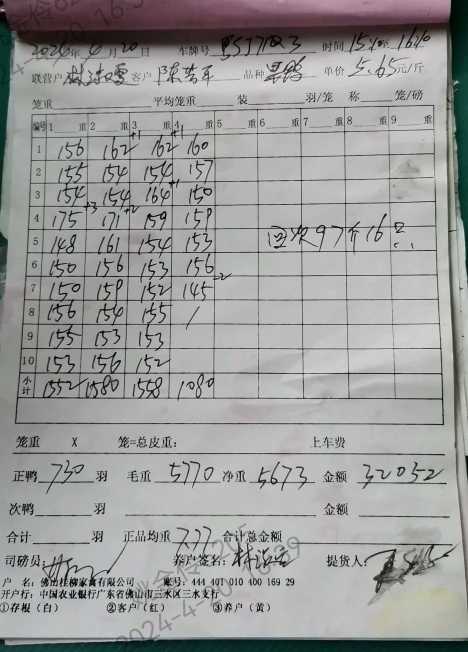 2024年4月20日 车牌号 时间 15:10至16:10
联营户 客户 陈 品种 单价 5.65元/斤
笼重 平均笼重 装 羽/笼 称 笼/磅
编号 1 重 2 重 3 重 4 重 5 重 6 重 7 重 8 重 9 重
1 156 162 +1 162 +1 160
2 155 154 154 157
3 154 154 164 +1 150
4 175 +3 171 +2 159 159
5 148 161 154 153 回次97个16只
6 150 156 153 156
7 150 159 152 145 -2
8 156 154 155 /
9 155 153 153
10 153 156 152
小计 1552 1580 1558 1080
笼重 X 笼=总皮重: 上车费
正鸭 730 羽 毛重 5770 净重 5673 金额 32052
次鸭 羽 金额
合计 羽 正品均重 7.77 合计总金额
司磅员: 养户签名: 提货人:
户 名: 佛山桂柳家禽有限公司 账号: 444 401 010 400 169 29
开户行: 中国农业银行广东省佛山市三水区三水支行
①存根(白) ②客户(红) ③养户(黄)